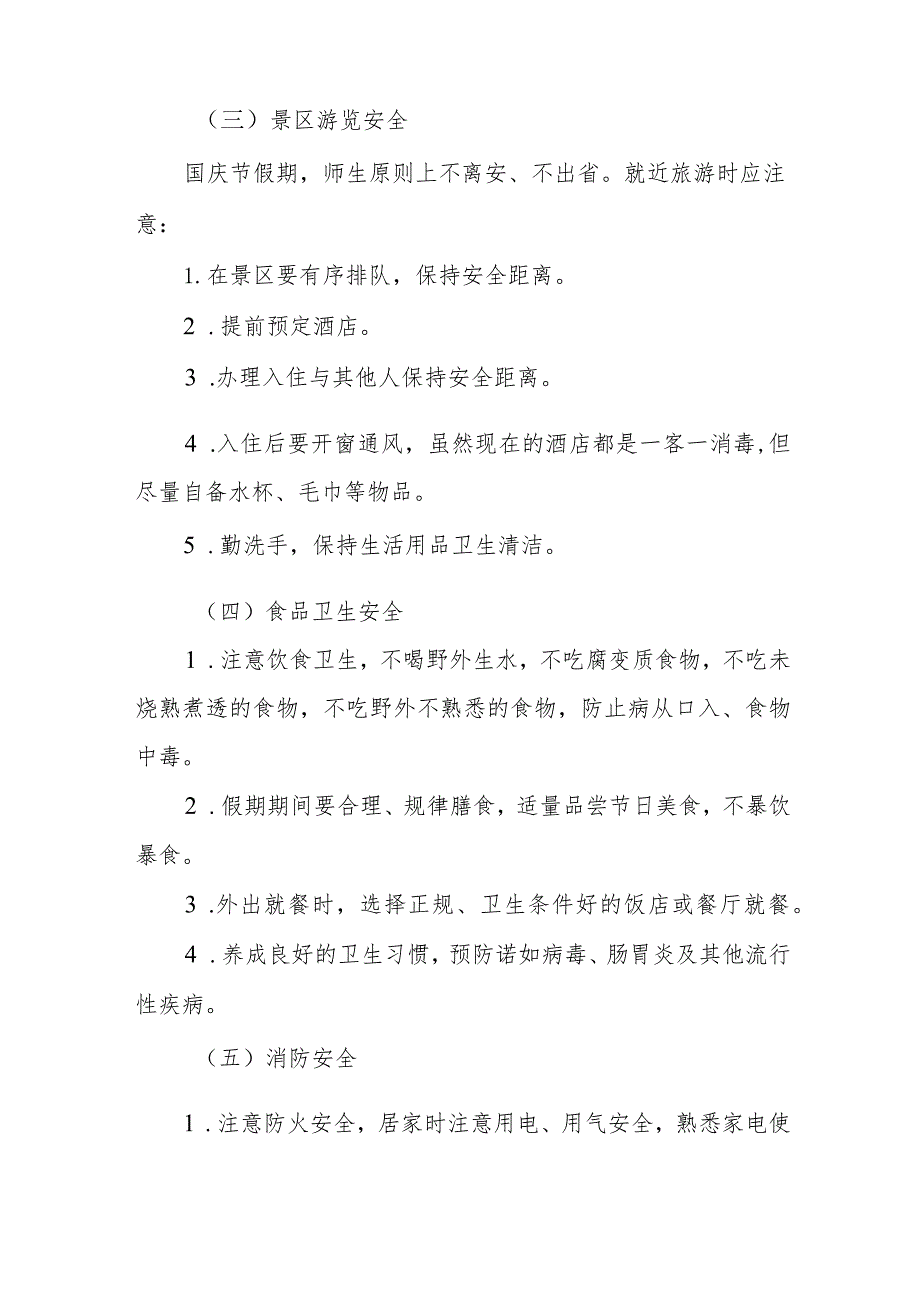 （三）景区游览安全
国庆节假期，师生原则上不离安、不出省。就近旅游时应注
意：
1.在景区要有序排队，保持安全距离。
2 .提前预定酒店。
3 .办理入住与其他人保持安全距离。
4 .入住后要开窗通风，虽然现在的酒店都是一客一消毒,但
尽量自备水杯、毛巾等物品。
5 .勤洗手，保持生活用品卫生清洁。
（四）食品卫生安全
1 .注意饮食卫生，不喝野外生水，不吃腐变质食物，不吃未
烧熟煮透的食物，不吃野外不熟悉的食物，防止病从口入、食物
中毒。
2 .假期期间要合理、规律膳食，适量品尝节日美食，不暴饮
暴食。
3 .外出就餐时，选择正规、卫生条件好的饭店或餐厅就餐。
4 .养成良好的卫生习惯，预防诺如病毒、肠胃炎及其他流行
性疾病。
（五）消防安全
1 .注意防火安全，居家时注意用电、用气安全，熟悉家电使